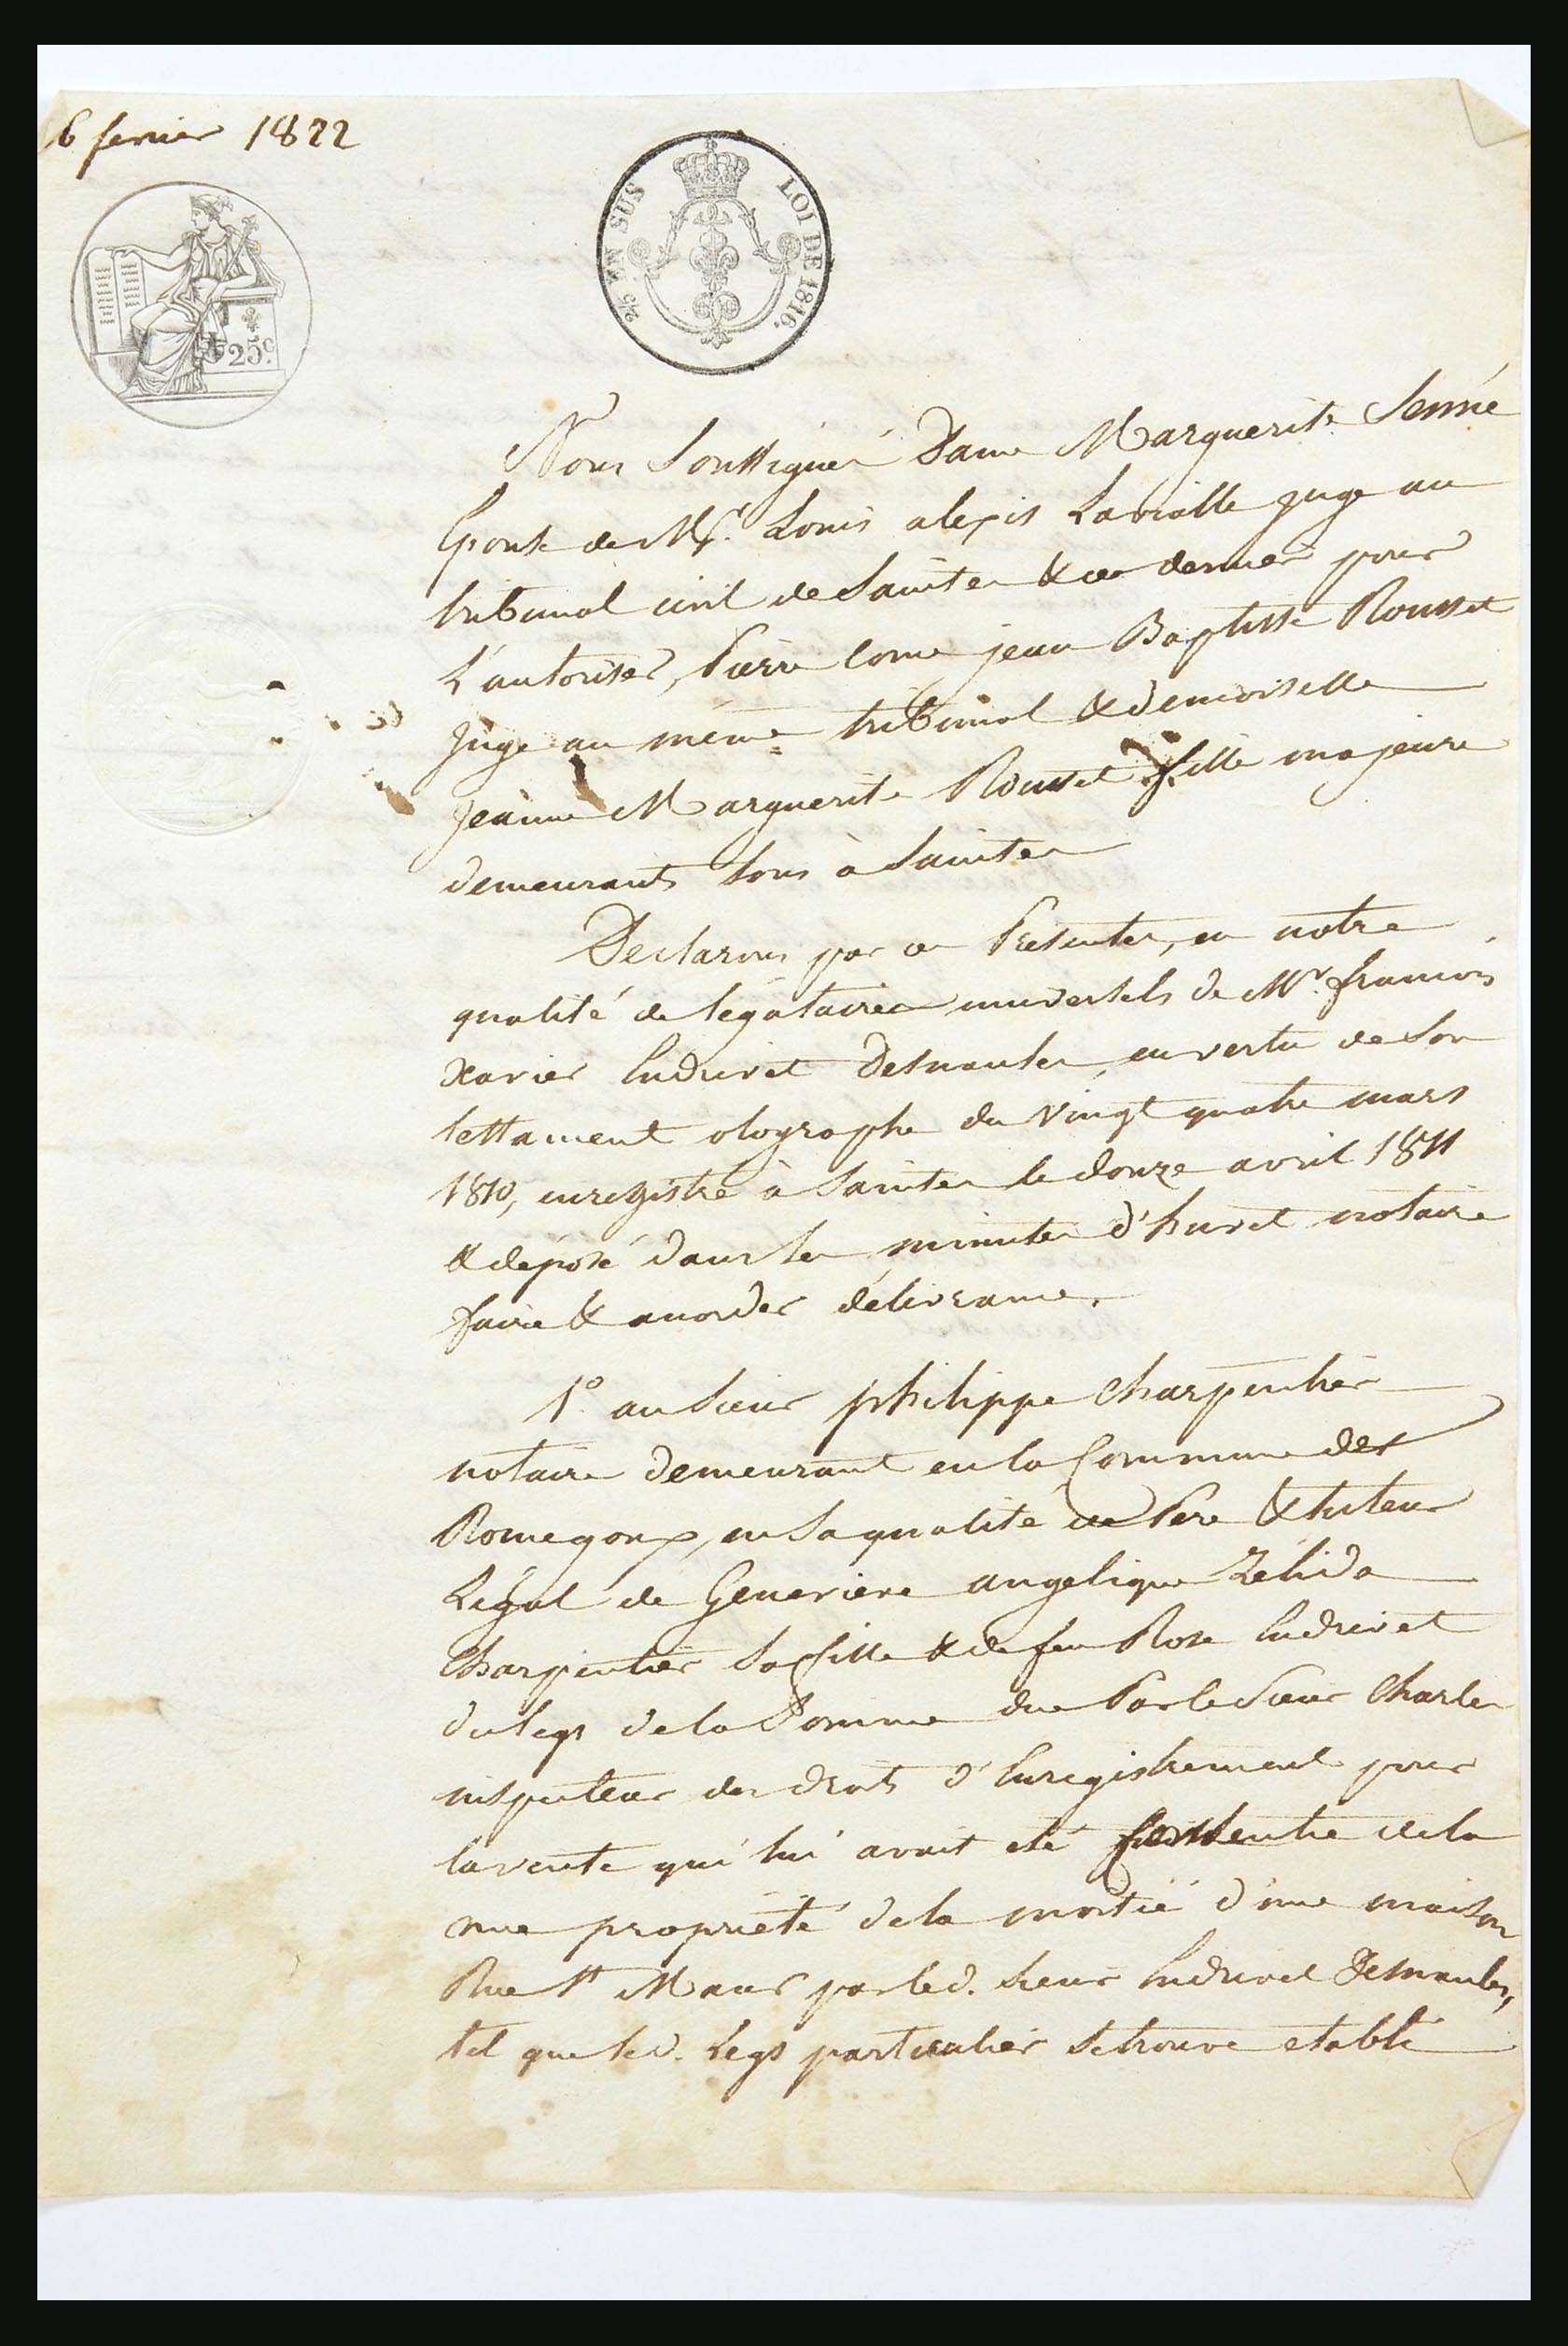 6 fevrier 1822
2/5 EN SUS
LOI DE 1816.
25c.
Nous Soussignés Dame Marguerite Senné
Epouse de Mr. Louis alexis Lavialle juge au
tribunal civil de Saintes & ce dernier pour
L'autoriser, Pierre Come jean Baptiste Rousset
juge au même tribunal & demoiselle
jeanne Marguerite Rousset fille majeure
demeurants tous à Saintes
Declarons par ces Présentes, en notre
qualité de légataires universels de Mr. françois
Xavier Ludrivet Desnaules, en vertu de son
testament olographe du vingt quatre mars
1810, enregistré à Saintes le douze avril 1811
& déposé dans les minutes d'huvet notaire
faire & accorder délivrance.
1o. au Sieur philippe Charpentier
notaire demeurant en la Commune de
Romegoux, en Sa qualité de Pere & tuteur
Légal de Genevieve angelique Zélida
Charpentier Sa fille & de feu Rose Ludrivet
du legs de la Somme due Par le Sieur Charles
inspecteur des droits d'Enregistrement pour
la vente qui lui avait été consentie de la
nue propriété de la moitié d'une maison
Rue St Maur par led. Sieur Ludrivet Desnaules,
tel que led. Legs particulier Se trouve etabli